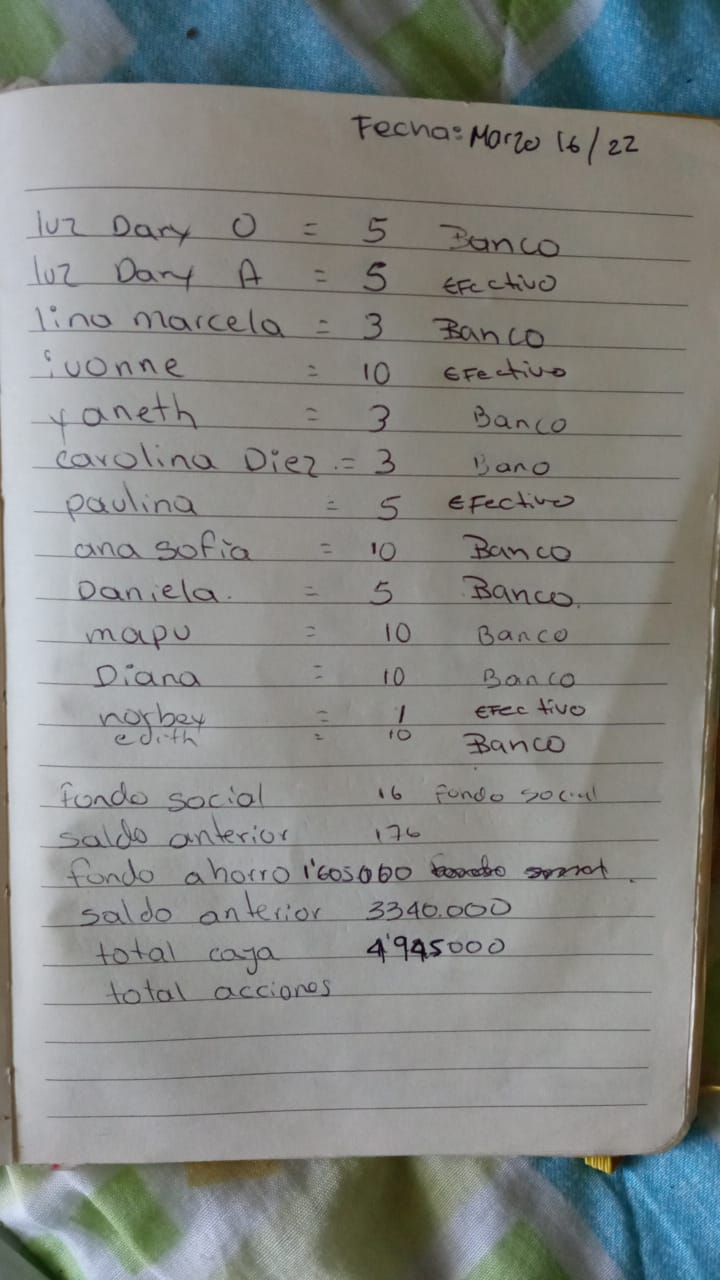 Fecha: Marzo 16/22
luz Dary O = 5 Banco
luz Dary A = 5 EFectivo
lina marcela = 3 Banco
ivonne = 10 EFectivo
yaneth = 3 Banco
carolina Diez = 3 Bano
paulina = 5 EFectivo
ana sofia = 10 Banco
Daniela. = 5 Banco.
mapu = 10 Banco
Diana = 10 Banco
norbey = 1 EFectivo
edith = 10 Banco
fondo social 16 fondo social
saldo anterior 176
fondo ahorro 1'605000
saldo anterior 3340.000
total caja 4'945000
total acciones